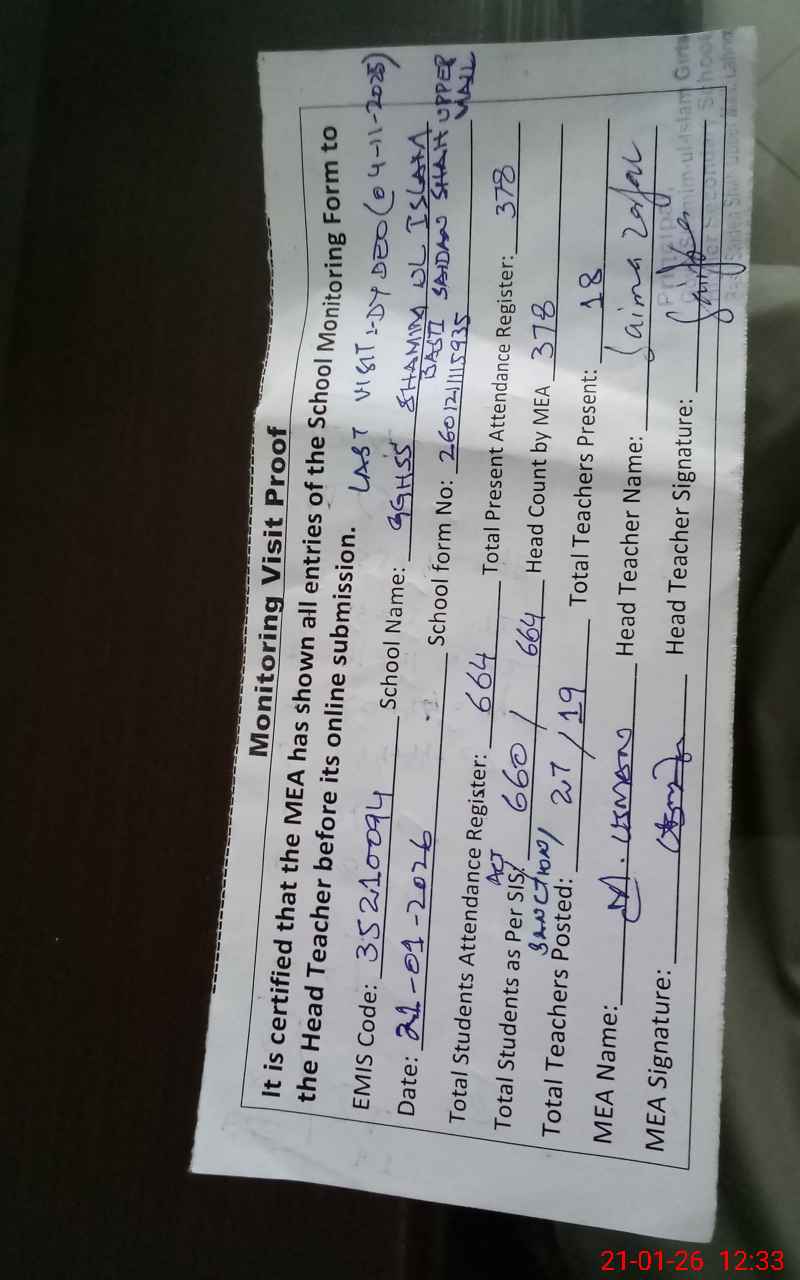 Monitoring Visit Proof
It is certified that the MEA has shown all entries of the School Monitoring Form to
the Head Teacher before its online submission. LAST VISIT:-DY DEO (04-11-2025)
EMIS Code: 35210094 School Name: GGHSS SHAMIM UL ISLAM
BASTI SAIDAN SHAH UPPER MALL
Date: 21-01-2026 School form No: 260121115935
Total Students Attendance Register: 664 Total Present Attendance Register: 378
Total Students as Per SIS/ ACT 660 / 664 Head Count by MEA 378
SANCTION/
Total Teachers Posted: 27 / 19 Total Teachers Present: 18
MEA Name: M. USMAN Head Teacher Name: Saima Zafar
MEA Signature: Head Teacher Signature:
Principal
Shamim-ul-Islam Girls
Higher Secondary School
Basti Saidan Shah Upper Mall Lahore
21-01-26 12:33